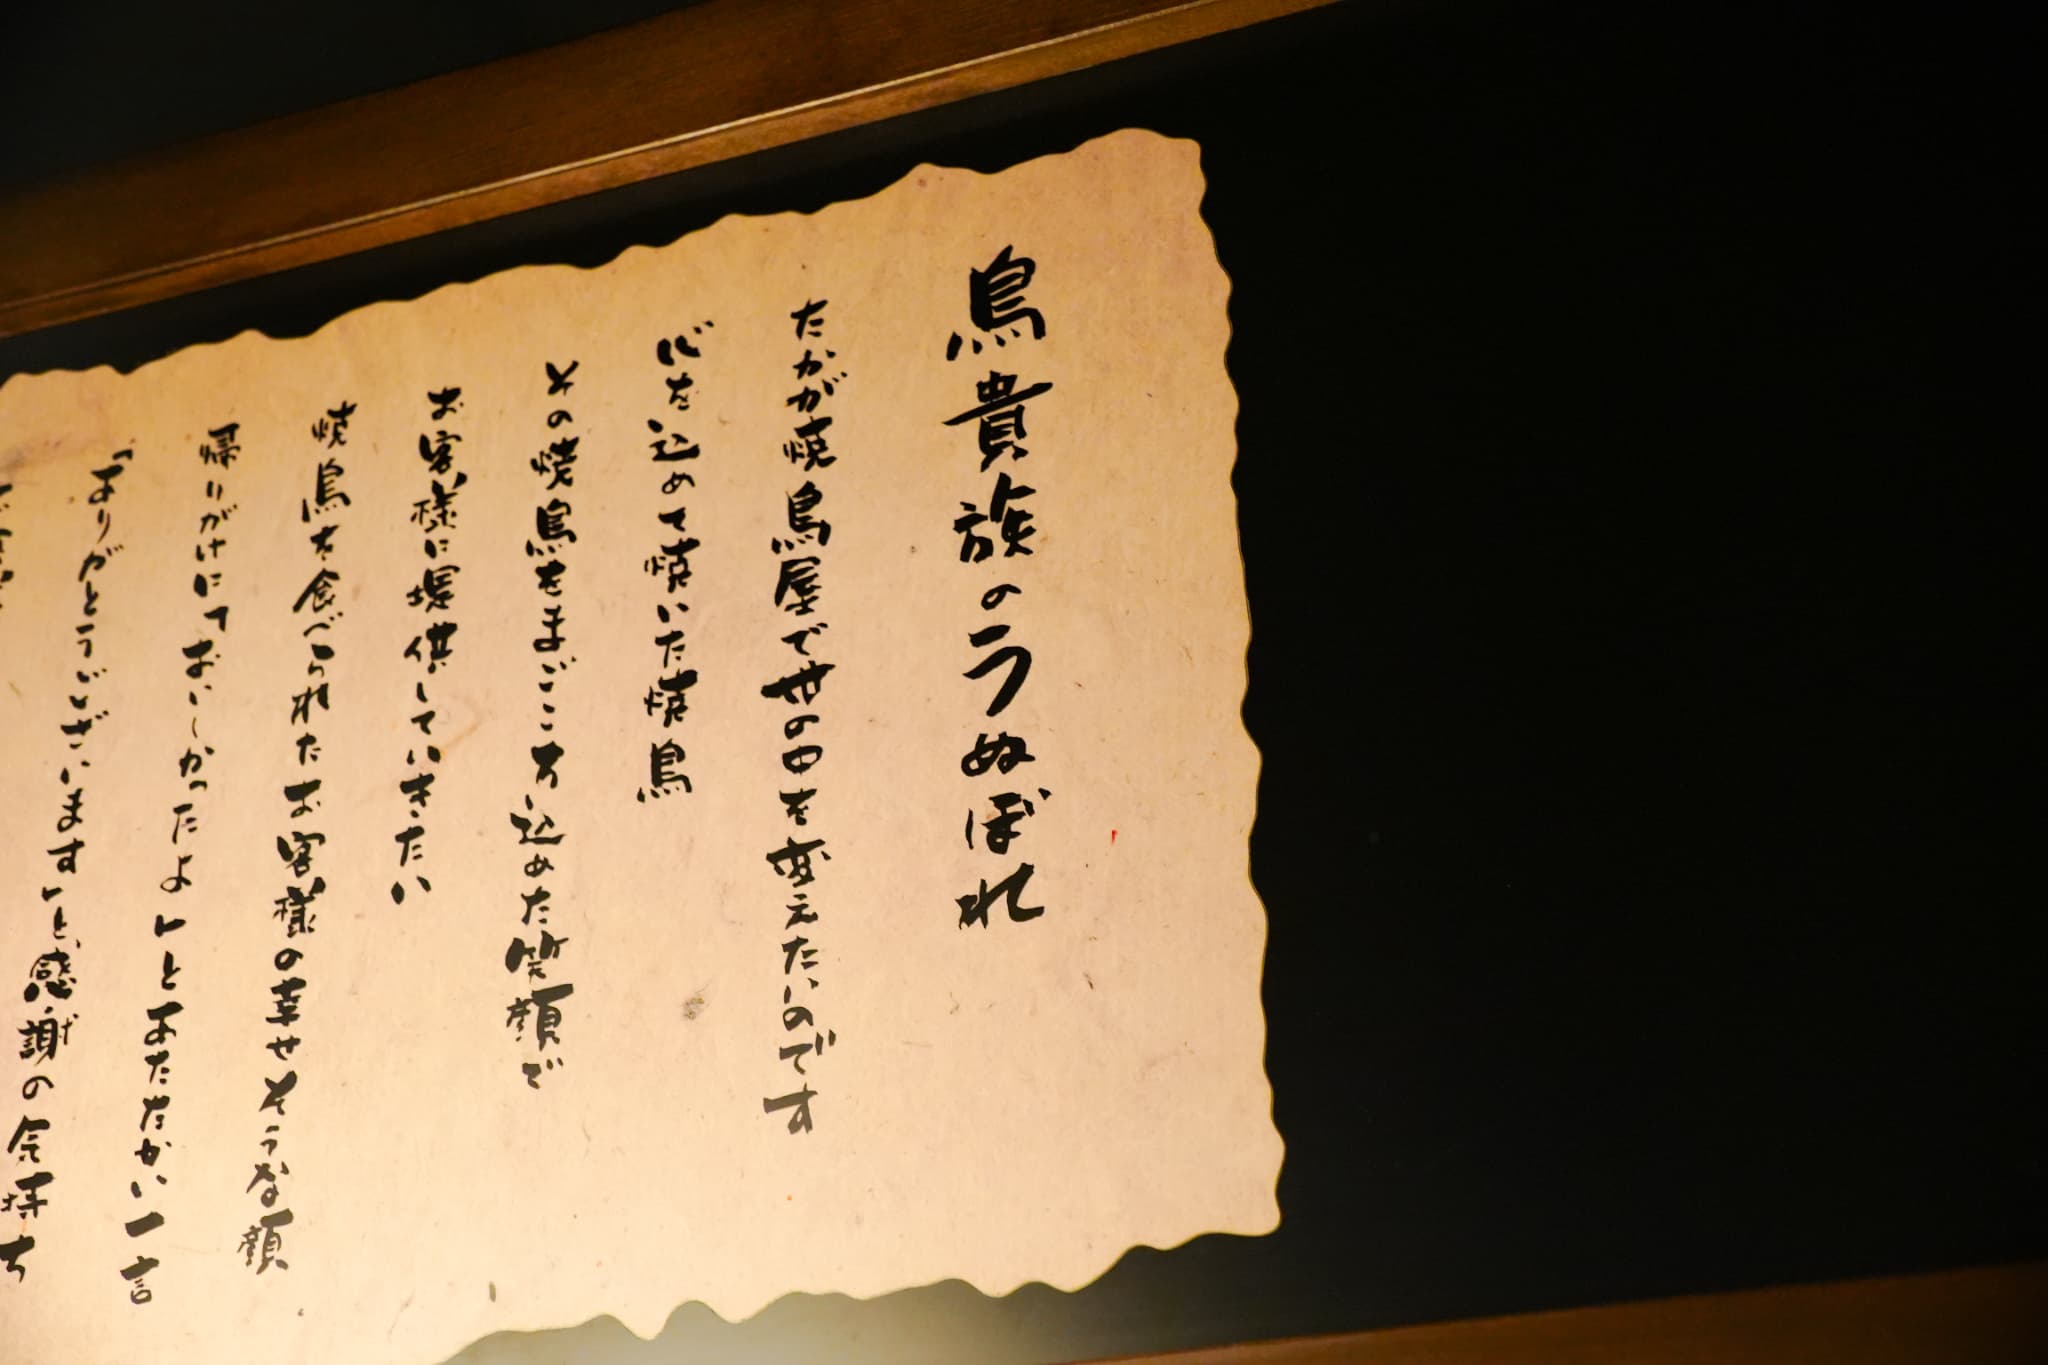 鳥貴族のうぬぼれ
たかが焼鳥屋で世の中を変えたいのです
心を込めて焼いた焼鳥
その焼鳥をまごころ込めた笑顔で
お客様に提供していきたい
焼鳥を食べられたお客様の幸せそうな顔
帰りがけにておいしかったよ」とあたたかい一言
「ありがとうございます」と、感謝の気持ち